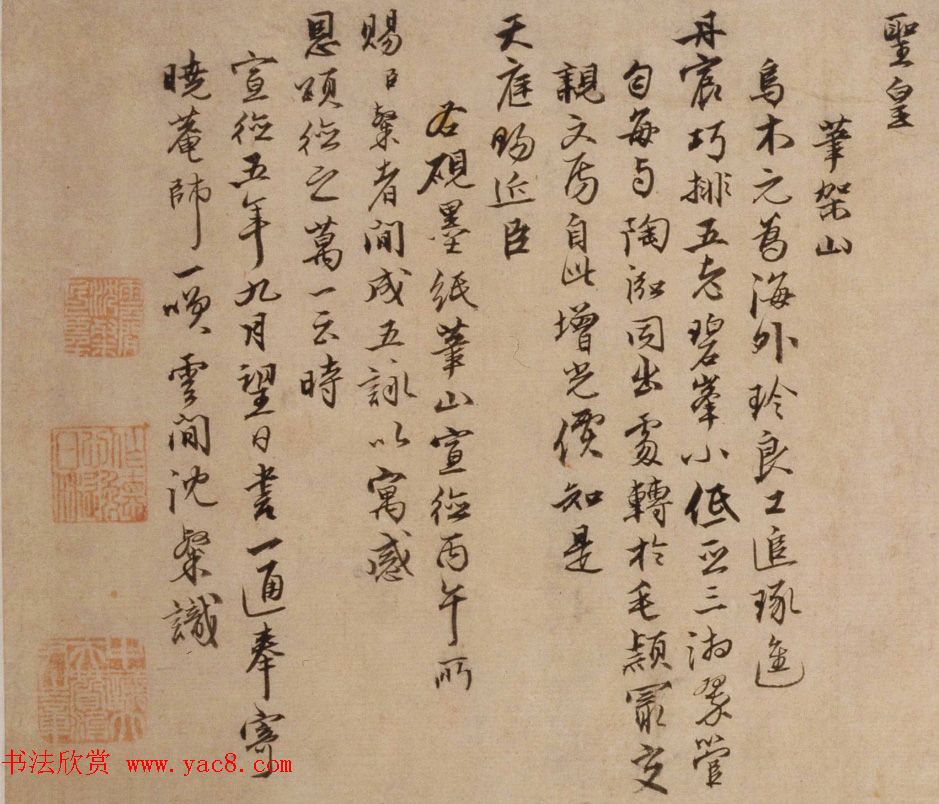 聖皇
筆架山
烏木元爲海外珎良工追琢進
丹宸巧排五老碧峯小低亞三湘翠管
勻每与陶泓同出處轉於毛穎最交
親文房自此增光價知是
天庭賜近臣
右硯墨紙筆山宣德丙午所
賜臣粲者間成五詠以寓感
恩頌德之萬一云時
宣德五年九月望日書一通奉寄
曉菴師一噱雲間沈粲識
书法欣赏 www.yac8.com